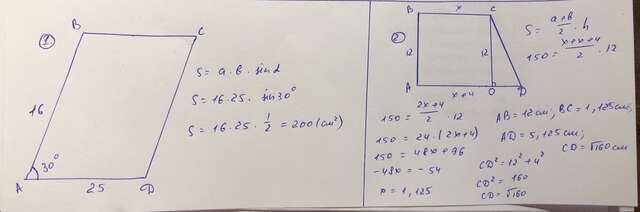 ①
B
C
16
30°
A
25
D
S = a · b · sin α
S = 16 · 25 · sin 30°
S = 16 · 25 · 1/2 = 200 (cm²)
②
B
x
C
12
12
A
x+4
O
D
S = (a+b)/2 · h
150 = (x+x+4)/2 · 12
150 = (2x+4)/2 · 12
150 = 24 · (2x+4)
150 = 48x + 96
-48x = -54
x = 1,125
AB = 12 cm; BC = 1,125 cm;
AD = 5,125 cm;
CD = √160 cm
CD² = 12² + 4²
CD² = 160
CD = √160